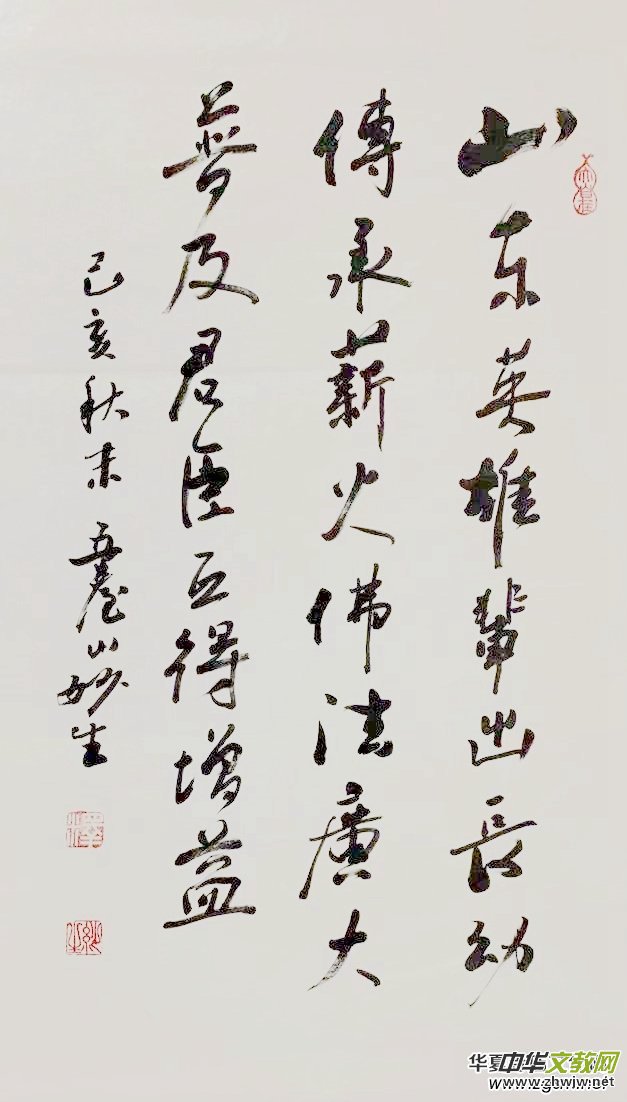 山东英雄辈出长幼
傳承薪火佛法廣大
普及君臣互得增益
己亥秋末 五臺山妙生
中华文教网
www.zhwjw.net